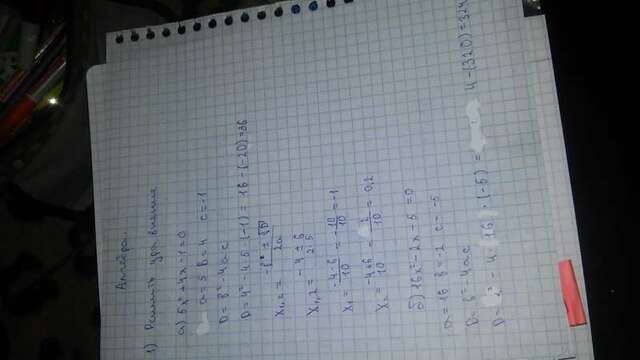 Алгебра.
1) Решить уравнения
а) 5x²+4x-1=0
a=5 b=4 c=-1
D=b²-4ac
D=4²-4·5·(-1)=16-(-20)=36
X₁,₂ = (-b ± √D)/2a
X₁,₂ = (-4 ± 6)/(2·5)
X₁ = (-4-6)/10 = -10/10 = -1
X₂ = (-4+6)/10 = 2/10 = 0,2
б) 16x²-2x-5=0
a=16 b=-2 c=-5
D=b²-4ac
D= ² - 4·(16)·(-5) = 4-(320)=324